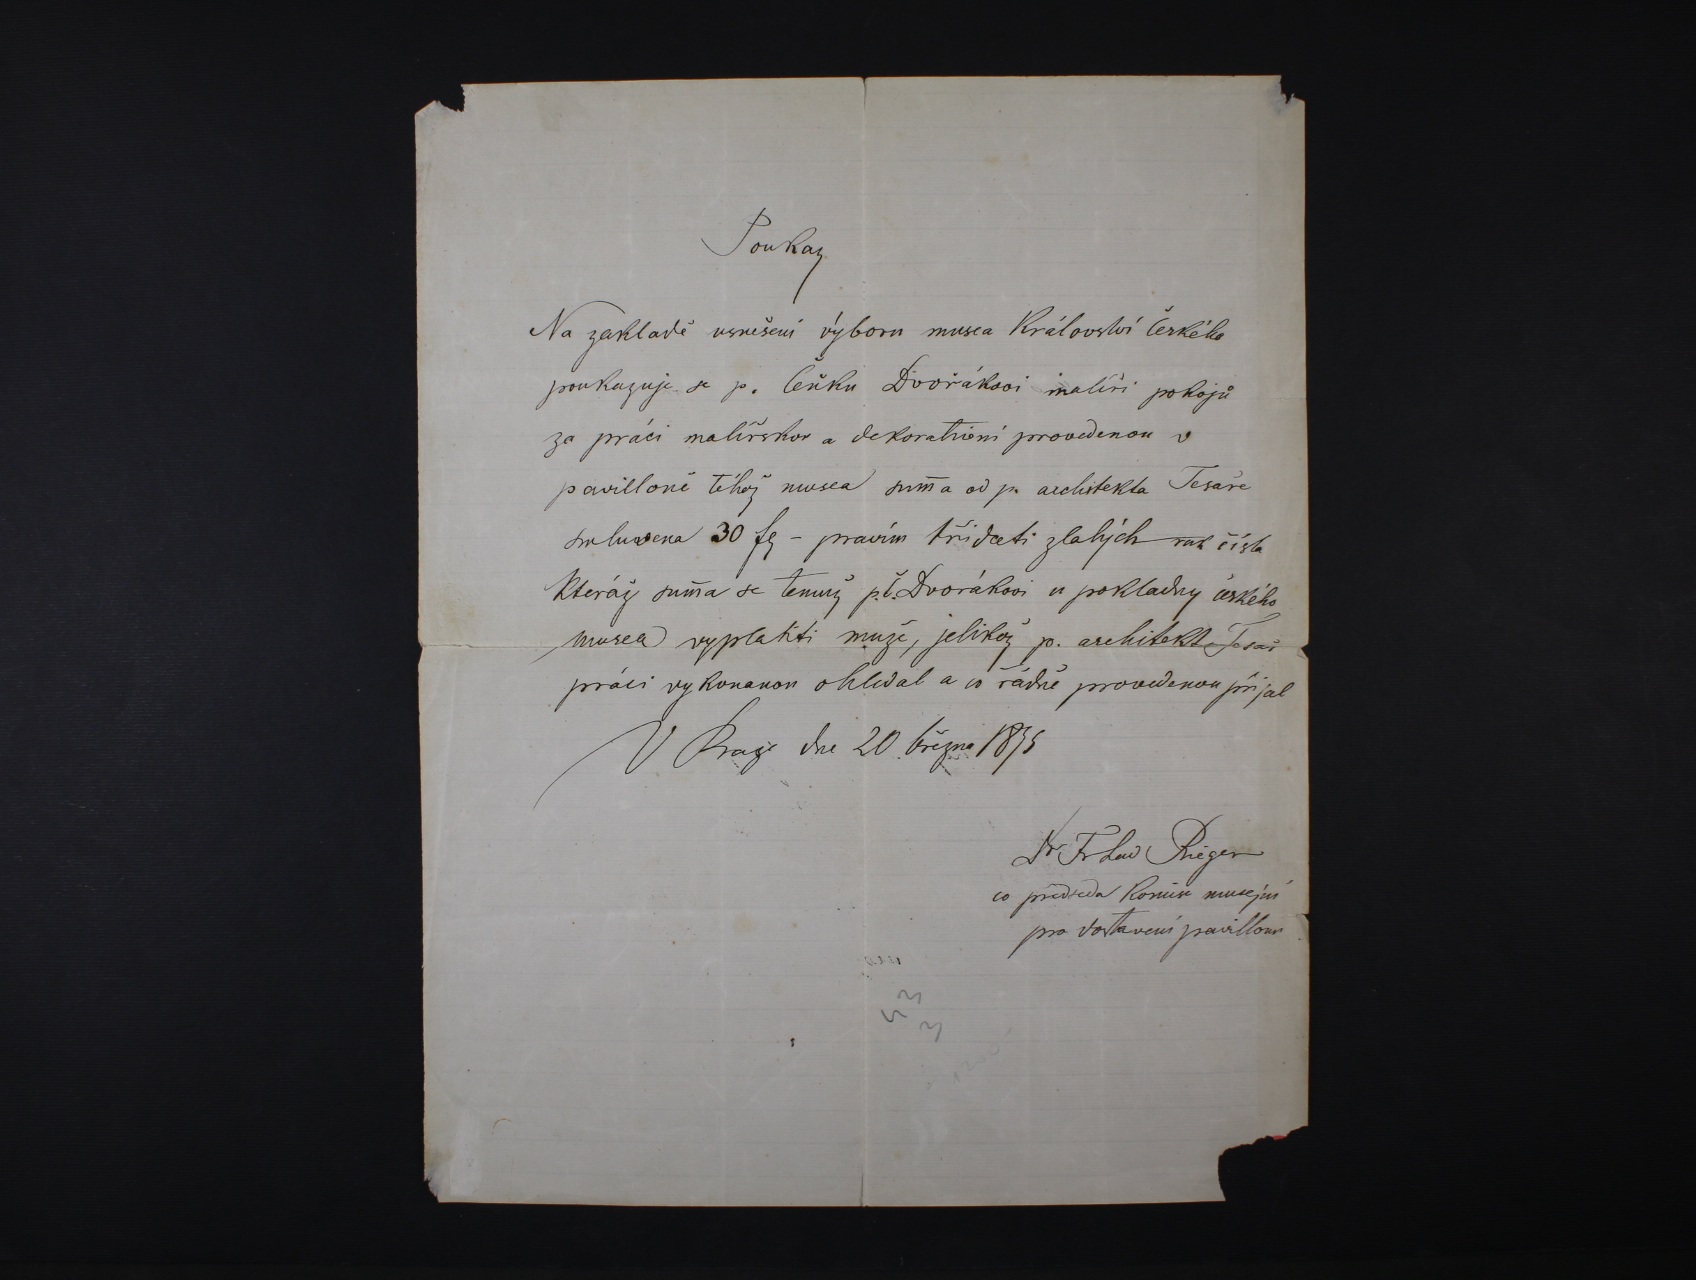 Poukaz
Na zakladě usnešení výboru musea Království českého
poukazuje se p. Čeňku Dvořákovi malíři pokojů
za práci malířskou a dekorativní provedenou v
pavilloně téhož musea summa od p. architekta Tesaře
smluvena 30 fz – pravím třidceti zlatých rak čísla
kteráž summa se temuž p.č. Dvořákovi u pokladny českého
musea vyplatiti muže, jelikož p. architekt Tesař
práci vykonanou ohledal a co řádně provedenou přijal
V Praze dne 20 března 1875
Dr Fr Lad Rieger
co předseda komise musejní
pro dostavení pavillonu